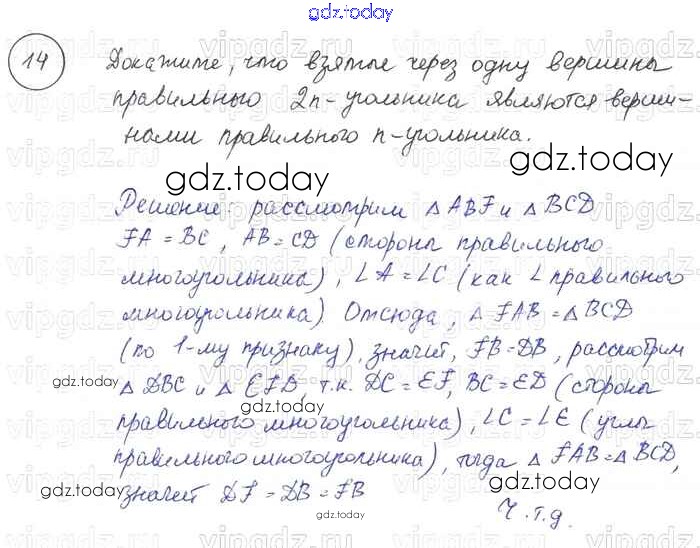 gdz.today
14
Докажите, что взятые через одну вершины
правильного 2n-угольника являются верши-
нами правильного n-угольника.
gdz.today
gdz.today
Решение: рассмотрим △ ABF и △ BCD
FA = BC, AB = CD (стороны правильного
многоугольника), ∠A = ∠C (как ∠ правильного
многоугольника) Отсюда, △ FAB = △ BCD
(по 1-му признаку), значит, FB = DB, рассмотрим
gdz.today
△ DBC и △ EFD, т.к. DC = EF, BC = ED (стороны
правильного многоугольника), ∠C = ∠E (углы
правильного многоугольника), тогда △ FAB = △ BCD,
gdz.today
gdz.today
значит DF = DB = FB
gdz.today
Ч.т.д.